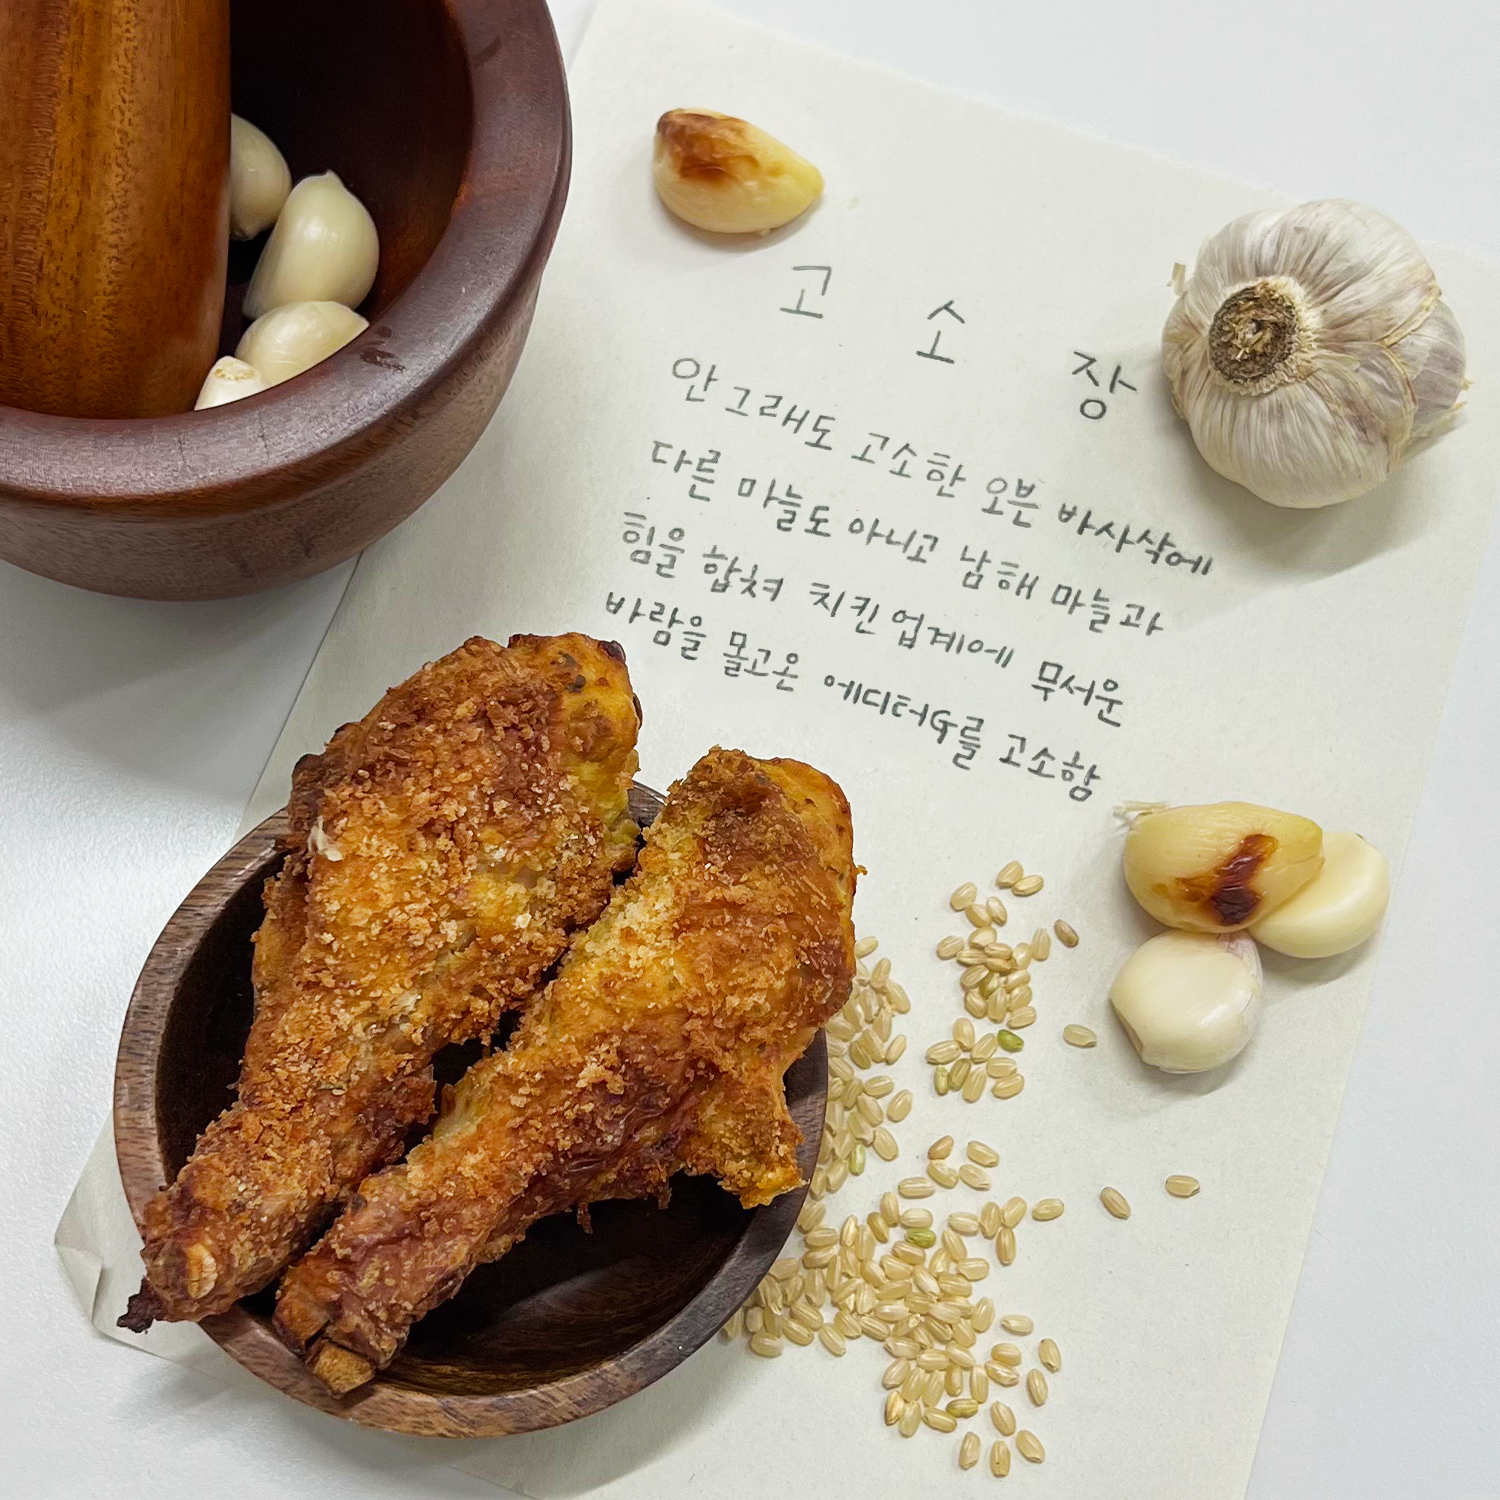 고 소 장
안 그래도 고소한 오븐 바사삭에
다른 마늘도 아니고 남해 마늘과
힘을 합쳐 치킨 업계에 무서운
바람을 몰고온 에디터G를 고소함